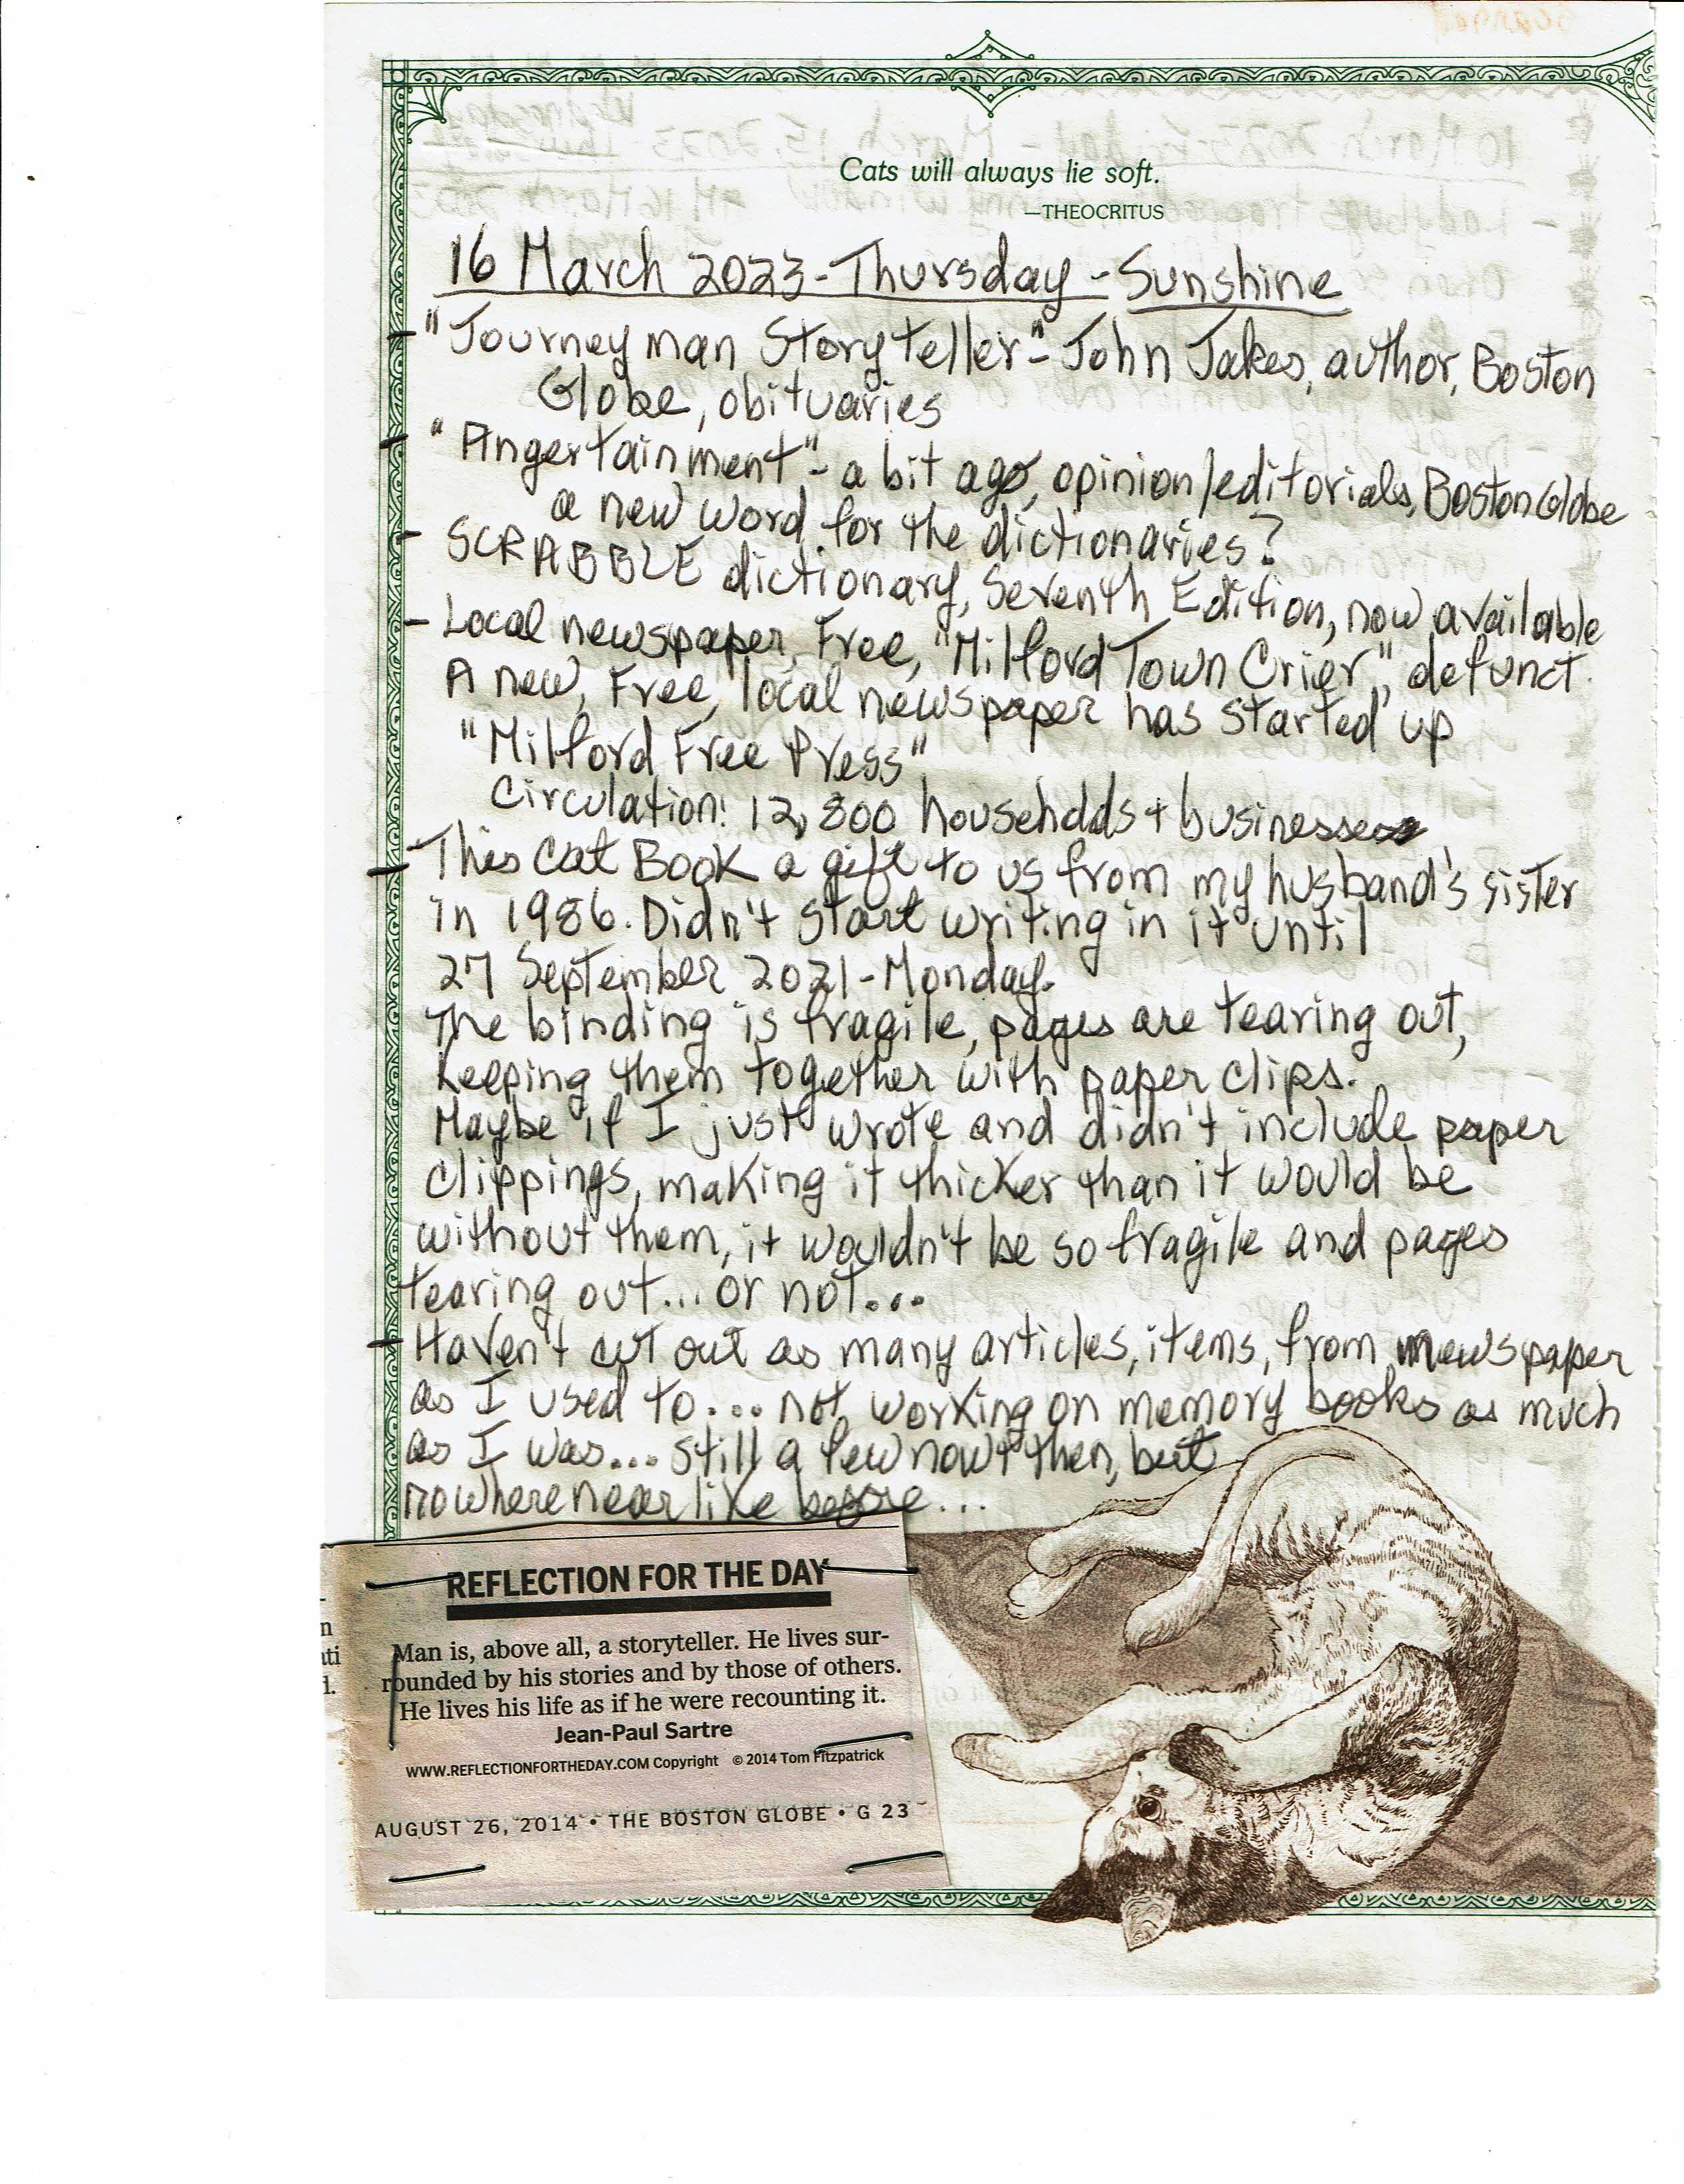 Cats will always lie soft.
—THEOCRITUS
16 March 2023-Thursday-Sunshine
- "Journeyman Storyteller"- John Jakes, author, Boston
Globe, obituaries
- "Angertainment"- a bit ago, opinion/editorials, Boston Globe
a new word for the dictionaries?
- SCRABBLE dictionary, Seventh Edition, now available
- Local newspaper, Free, "Milford Town Crier", defunct.
A new, Free, local newspaper has started up
"Milford Free Press"
Circulation: 12,800 households + businesses
- This Cat Book a gift to us from my husband's sister
in 1986. Didn't start writing in it until
27 September 2021-Monday.
The binding is fragile, pages are tearing out,
keeping them together with paper clips.
Maybe if I just wrote and didn't include paper
clippings, making it thicker than it would be
without them, it wouldn't be so fragile and pages
tearing out... or not...
- Haven't cut out as many articles, items, from newspaper
as I used to... not working on memory books as much
as I was... still a few now + then, but
nowhere near like before...
REFLECTION FOR THE DAY
Man is, above all, a storyteller. He lives sur-
rounded by his stories and by those of others.
He lives his life as if he were recounting it.
Jean-Paul Sartre
WWW.REFLECTIONFORTHEDAY.COM Copyright © 2014 Tom Fitzpatrick
AUGUST 26, 2014 • THE BOSTON GLOBE • G 23